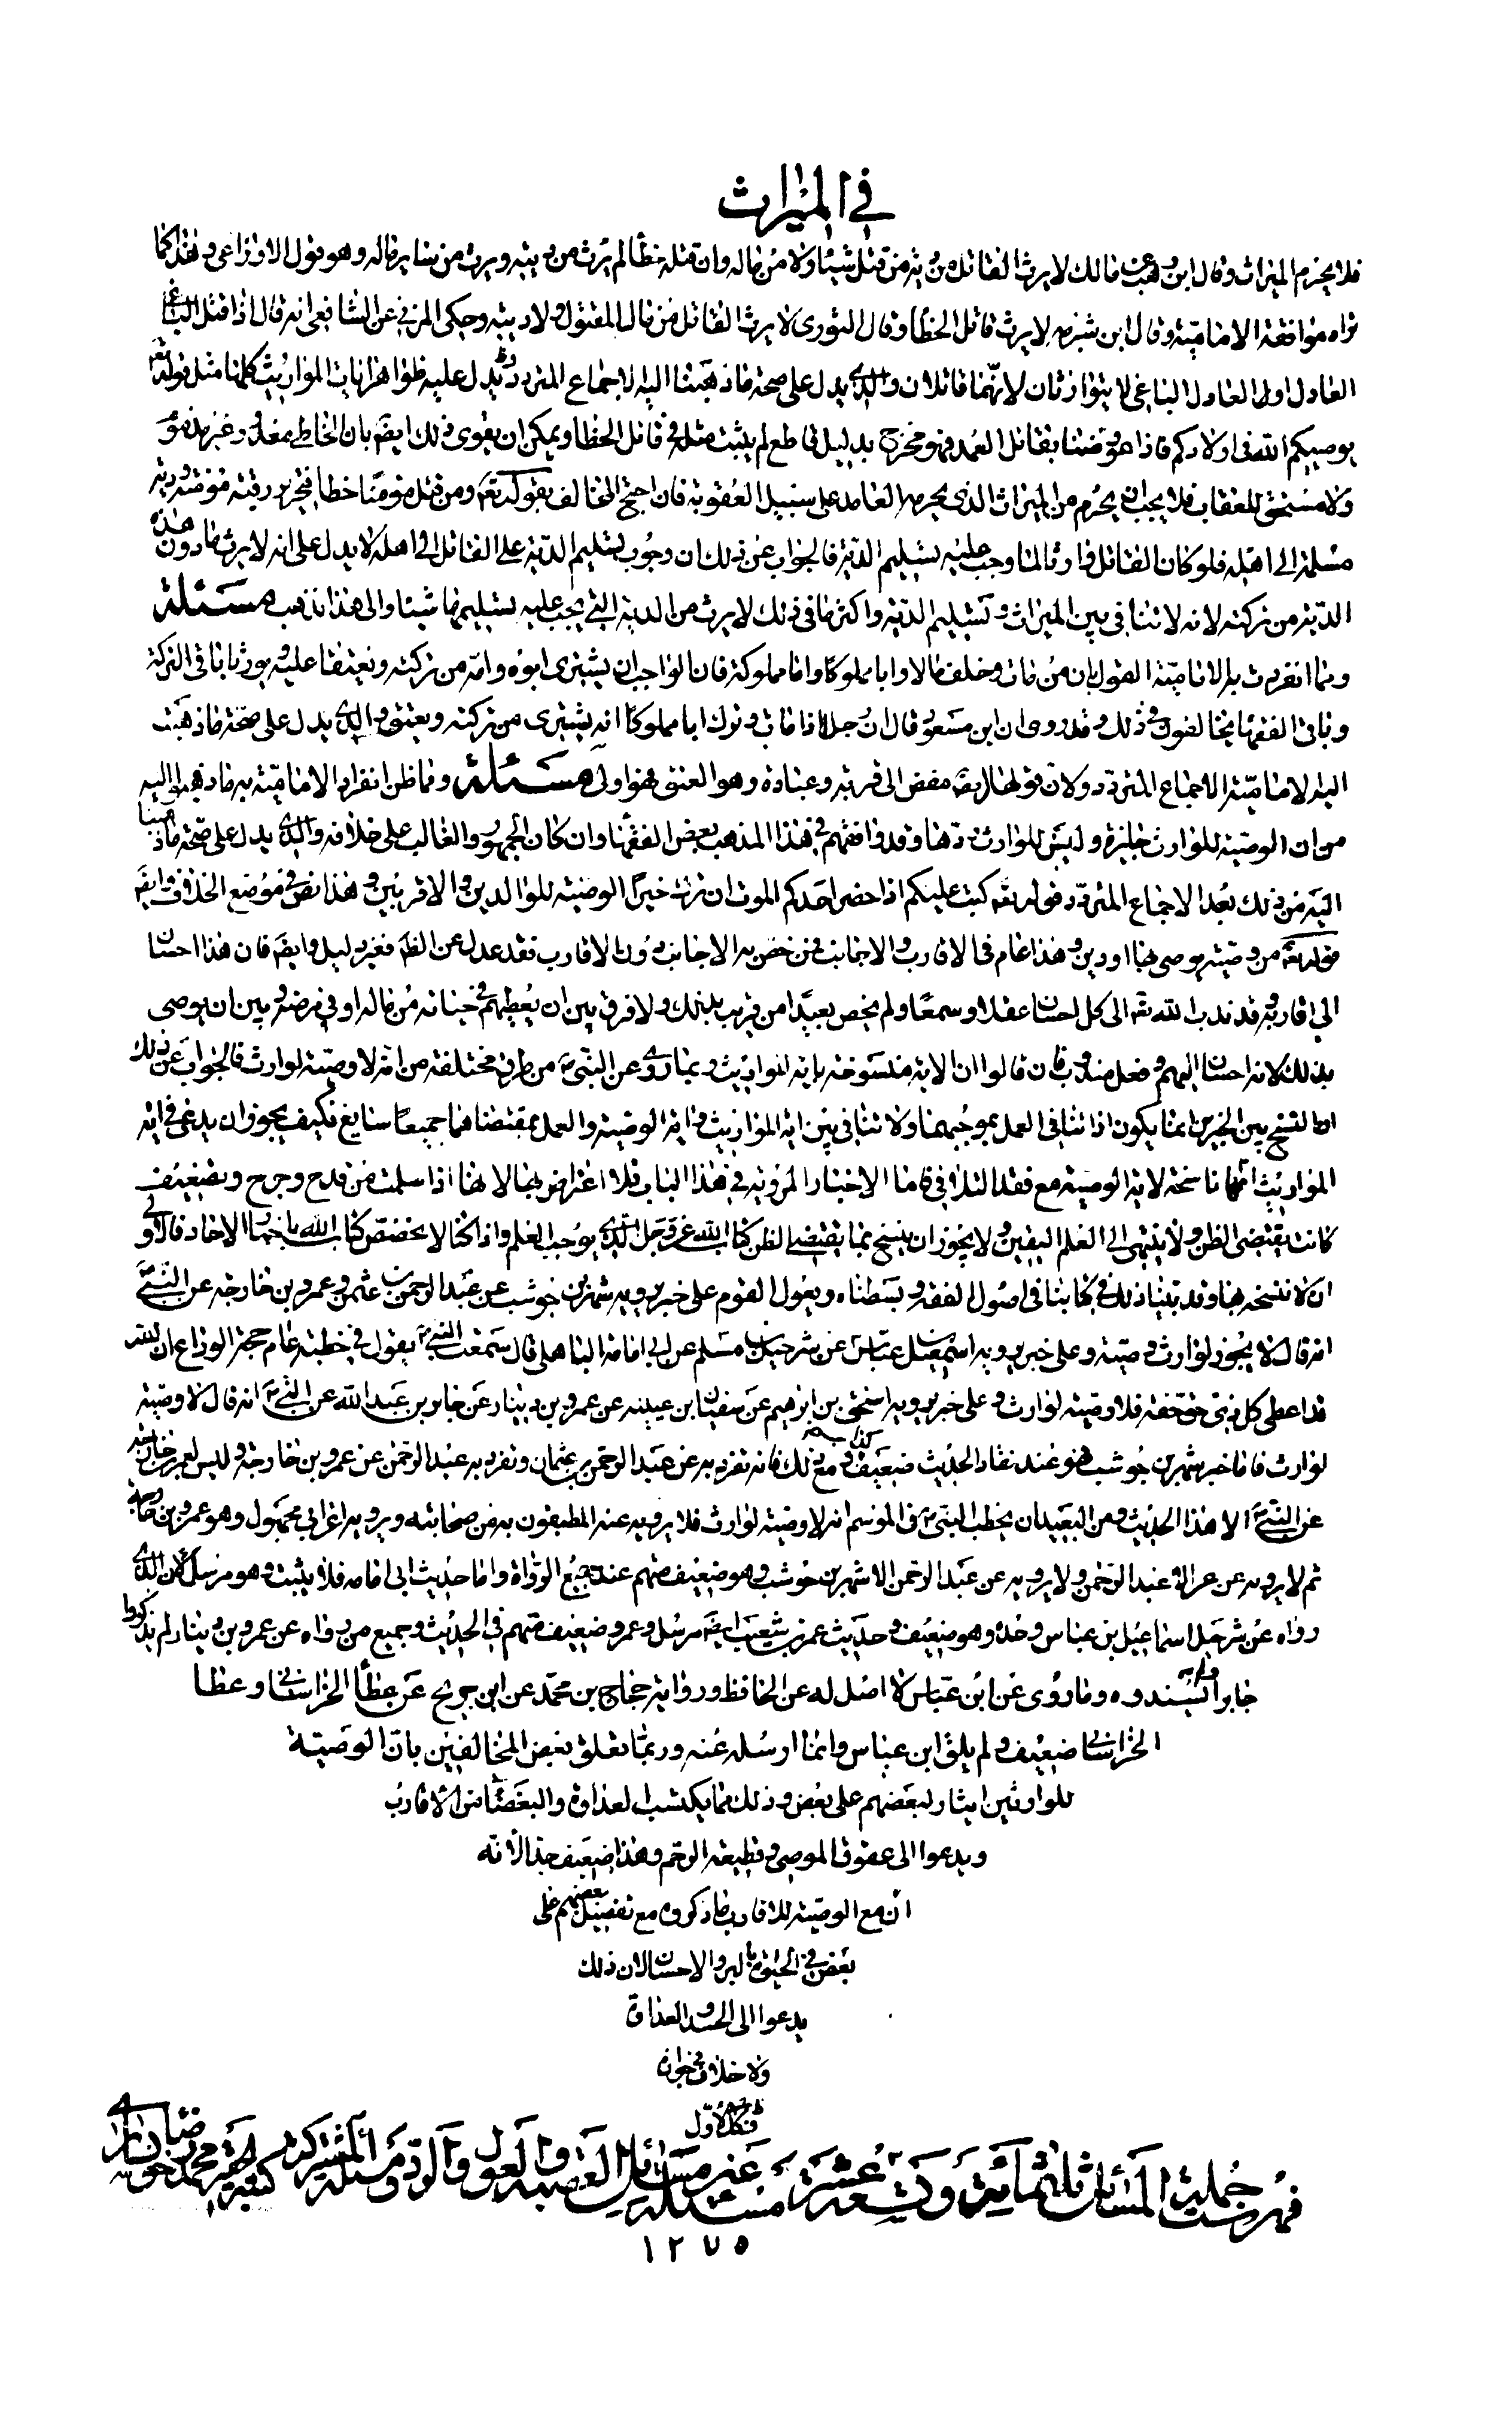 في الميراث
فلا يحرم الميراث وقال ابن وهب عن مالك لا يرث القاتل من دية من قتل شيئا ولا من ماله وان قتله خطأ لم يرث من ديته ويرث من سائر ماله وهو قول الاوزاعي وهذا كما
تراه موافقة الامامية وقال ابن شبرمه لا يرث قاتل الخطا وقال الثوري لا يرث القاتل من مال المقتول ولا ديته وحكى المزني عن الشافعي انه قال اذا قتل الباغي
العادل او العادل الباغي لا يتوارثان لانهما قاتلان والذي يدل على صحة ما ذهبنا اليه الاجماع المتردد ويدل عليه ظواهر ايات المواريث كلها مثل قوله تعالى
يوصيكم الله في اولادكم فاذا عورضنا بقاتل العمد فهو مخرج بدليل قاطع لم يثبت مثله في قاتل الخطا ويمكن ان يقوى ذلك ايضا بان الخاطي معذور وغير مذموم
ولا مستحق للعقاب فلا يجب ان يحرم من الميراث الذي يحرمه العامد على سبيل العقوبة فان احتج المخالف بقوله تعالى ومن قتل مؤمنا خطا فتحرير رقبة مؤمنة ودية
مسلمة الى اهله فلو كان القاتل وارثا لما وجب عليه تسليم الدية فالجواب عن ذلك ان وجوب تسليم الدية على القاتل الى اهله لا يدل على انه لا يرث ما دون هذه
الدية من تركته لانه لا تنافي بين الميراث وتسليم الدية واكثر ما في ذلك الا يرث من الدية التي يجب عليه تسليمها شيئا والى هذا نذهب مسئلة
ومما انفردت به الامامية القول بان من مات وخلف مالا وابا مملوكا واما مملوكة فان الواجب ان يشترى ابوه وامه من تركته ويعتقا عليه ويورثا باقي التركة
وباقي الفقهاء يخالفون في ذلك وقد روي ان ابن مسعود قال ان رجلا اذا مات وترك ابا مملوكا انه يشترى من تركته ويعتق والذي يدل على صحة ما ذهبت
اليه الامامية الاجماع المتردد ولان قولها ايضا مفض الى قربة وعبادة وهو العتق فهو اولى مسئلة ومما ظن انفراد الامامية به ما ذهبوا اليه
من ان الوصية للوارث جائزة وليس للوارث ردها وقد وافقهم في هذا المذهب بعض الفقهاء وان كان الجمهور والغالب على خلافه والذي يدل على صحة ما ذهبنا
اليه من ذلك بعد الاجماع المتردد قوله تعالى كتب عليكم اذا حضر احدكم الموت ان ترك خيرا الوصية للوالدين والاقربين وهذا نص في موضع الخلاف وايضا
قوله تعالى من وصية يوصى بها او دين وهذا عام في الاقارب والاجانب فمن خص به الاجانب دون الاقارب فقد عدل عن الظاهر بغير دليل وايضا فان هذا احسان
الى اقاربه وقد ندب الله تعالى الى كل احسان عقلا وسمعا ولم يخص بعيدا من قريب بذلك ولا فرق بين ان يعطيهم في حياته من ماله او في مرضه وبين ان يوصى
بذلك لانه احسان اليهم وفعل مندوب فان قالوا ان الاية منسوخة باية المواريث وبما روي عن النبي ص من طرق مختلفة من انه لا وصية لوارث فالجواب عن ذلك
ان النسخ بين الخبرين انما يكون اذا تنافى العمل بموجبهما ولا تنافي بين اية المواريث واية الوصية والعمل بمقتضاهما جميعا سايغ فكيف يجوز ان يدعى في اية
المواريث انها ناسخة لاية الوصية مع فقد التنافي فاما الاخبار المروية في هذا الباب فلا اعتراض بها لانها اذا سلمت من قدح وجرح وتضعيف
كانت يقتضى الظن ولا ينتهى الى العلم اليقين ولا يجوز ان ينسخ بما يقتضى الظن كتاب الله عز وجل الذي يوجب العلم واذا كنا لا نخصص كتاب الله باخبار الاحاد فالاولى
ان لا ننسخه بها وقد بينا ذلك في كتابنا في اصول الفقه وبسطناه ويعول القوم على خبر يرويه شهر بن حوشب عن عبد الرحمن بن عثمن وعمرو بن خارجه عن النبي ص
انه قال لا يجوز لوارث وصية وعلى خبر يرويه اسمعيل بن عياش عن شرحبيل بن مسلم عن ابي امامة الباهلي قال سمعت النبي ص يقول في خطبته عام حجة الوداع ان الله
قد اعطى كل ذي حق حقه فلا وصية لوارث وعلى خبر يرويه اسحق بن ابرهيم عن سفيان ابن عيينه عن عمرو بن دينار عن جابر بن عبد الله عن النبي ص انه قال لا وصية
لوارث فاما خبر شهر بن حوشب فهو عند نقاد الحديث ضعيف ومع ذلك فانه تفرد به عن عبد الرحمن بن عثمان وتفرد به عبد الرحمن عن عمرو بن خارجة وليس لعمرو بن خارجة
عن النبي ص الا هذا الحديث ومن البعيد ان يخطب النبي ص في الموسم انه لا وصية لوارث فلا يرويه عنه المطيفون به من صحابته ويرويه اعرابي مجهول وهو عمرو بن خارجة
ثم لا يرويه عن عمرو الا عبد الرحمن ولا يرويه عن عبد الرحمن الا شهر بن حوشب وهو ضعيف متهم عند جميع الرواة واما حديث ابي امامه فلا يثبت وهو مرسل لان الذي
رواه عن شرحبيل اسماعيل بن عياش وحده وهو ضعيف وحديث عمرو بن شعيب ايضا مرسل وعمرو ضعيف متهم في الحديث وجميع من رواه عن عمرو بن دينار لم يذكروا
جابرا ولم يسندوه وما روى عن ابن عباس لا اصل له عن الحافظ ورواية حجاج بن محمد عن ابن جريح عن عطأ الخراساني وعطا
الخراساني ضعيف ولم يلق ابن عباس وانما ارسله عنه وربما تعلق بعض المخالفين بان الوصية
للوارثين ايثار لبعضهم على بعض وذلك مما يكسب العداوة والبغضاء بين الاقارب
ويدعوا الى عقوق الموصي وقطيعة الرحم وهذا ضعيف جدا لانه
ان منع الوصية للاقارب ما ذكروه منع تفضيل بعضهم على
بعض في الحيوة بالبر والاحسان لان ذلك
يدعوا الى الحسد والعداوة
ولا خلاف في جوازه
فكذا الاول
فهرست جملة المسائل ثلثمائة وتسعة عشرة مسئلة غير مسائل العصبة والعول والرد ومسئلة المشتركة
١٢٧٥